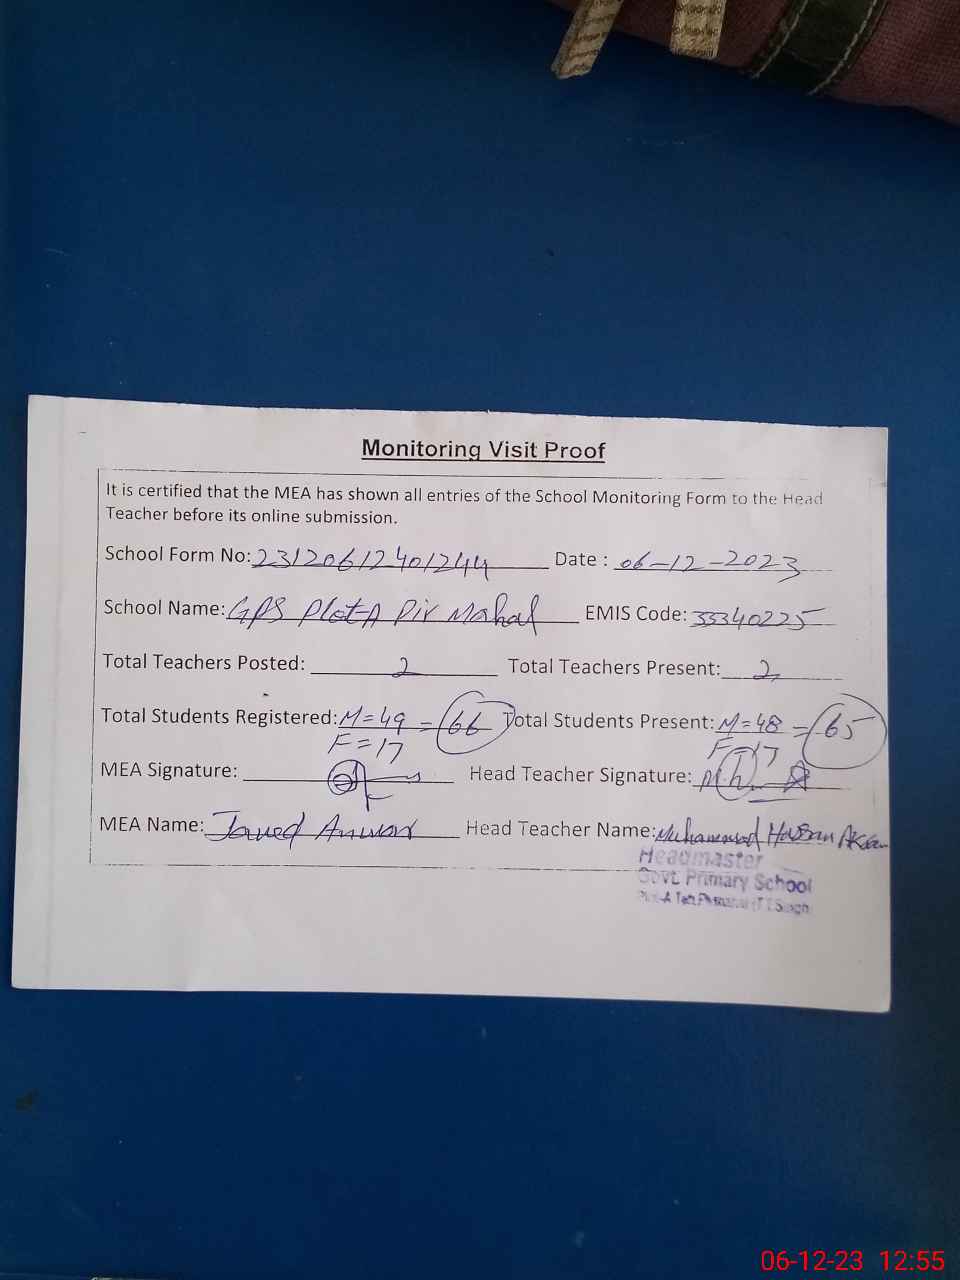 Monitoring Visit Proof
It is certified that the MEA has shown all entries of the School Monitoring Form to the Head
Teacher before its online submission.
School Form No: 23120612401244 Date : 06-12-2023
School Name: GPS Plot A Pir Mahal EMIS Code: 33340225
Total Teachers Posted: 2 Total Teachers Present: 2
Total Students Registered: M=49 = 66 Total Students Present: M=48 = 65
F=17 F=17
MEA Signature: Head Teacher Signature:
MEA Name: Javed Anwar Head Teacher Name: Muhammad Hassan
Headmaster
Govt. Primary School
06-12-23 12:55